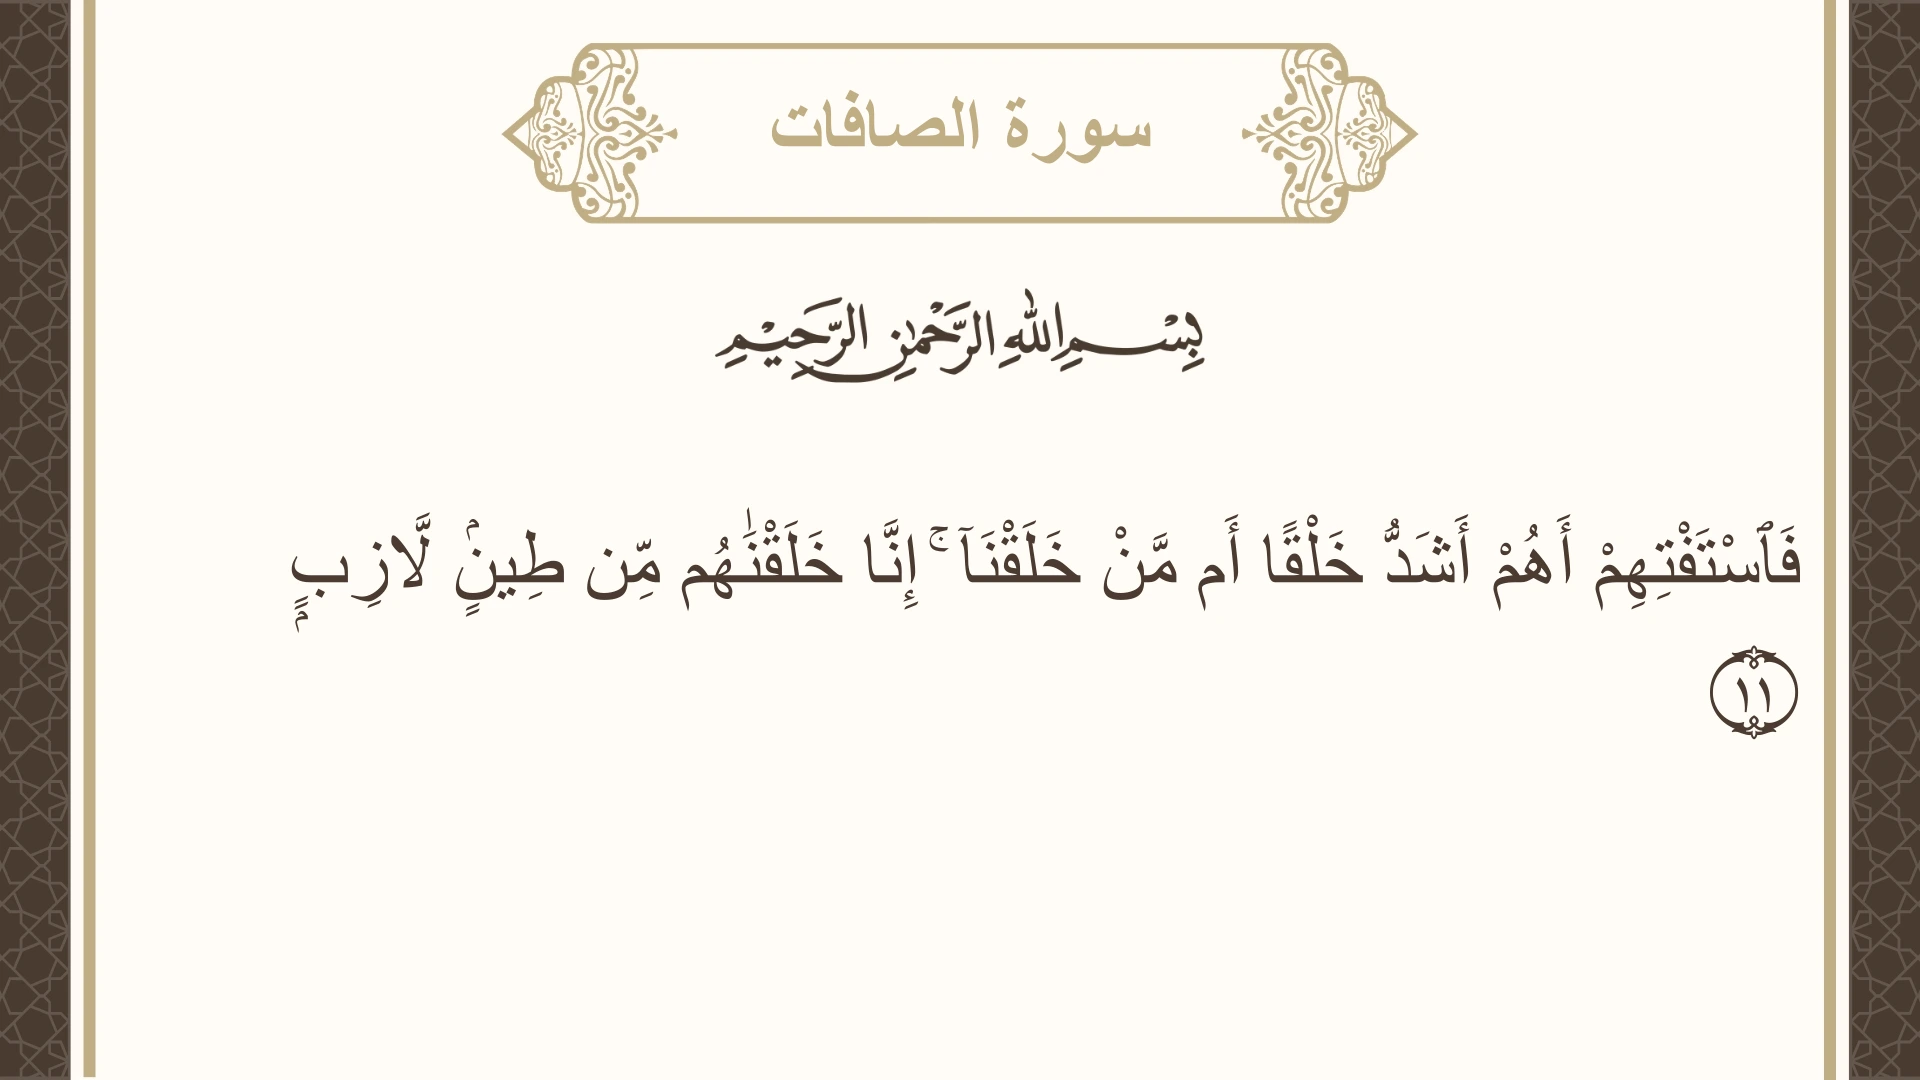 سورة الصافات
بِسْمِ اللهِ الرَّحْمٰنِ الرَّحِيْمِ
فَٱسْتَفْتِهِمْ أَهُمْ أَشَدُّ خَلْقًا أَم مَّنْ خَلَقْنَآ ۚ إِنَّا خَلَقْنَٰهُم مِّن طِينٍۢ لَّازِبٍۭ
١١